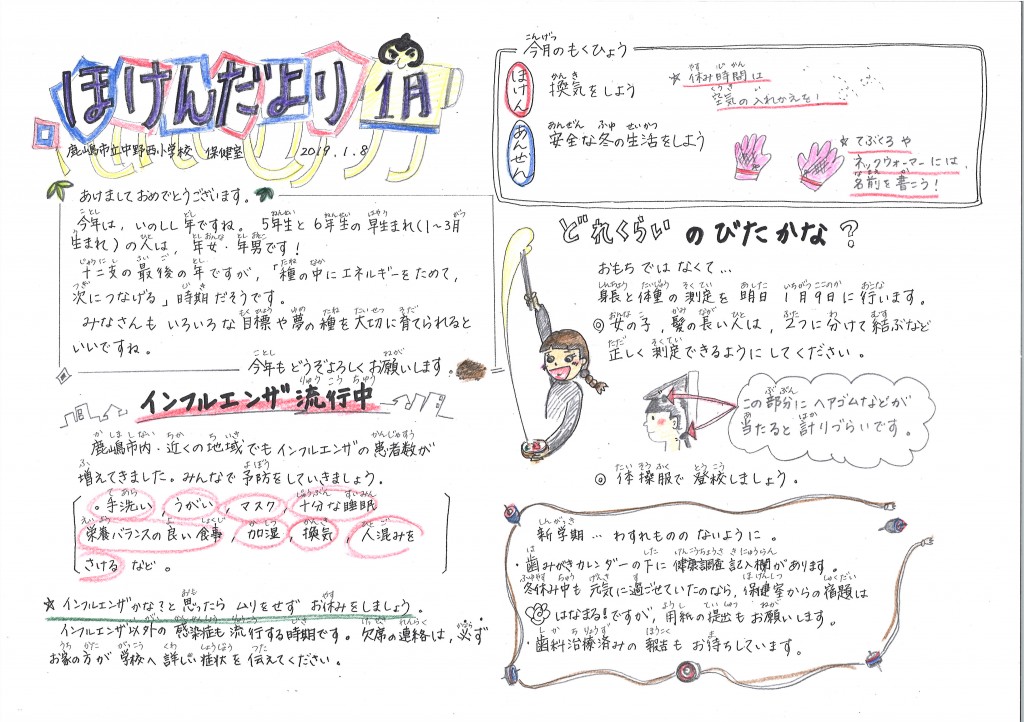 ほけんだより 1月
鹿嶋市立中野西小学校 保健室 2019.1.8
あけましておめでとうございます。
今年は，いのしし年ですね。5年生と6年生の早生まれ(1〜3月
生まれ)の人は，年女・年男です！
十二支の最後の年ですが，「種の中にエネルギーをためて，
次につなげる」時期だそうです。
みなさんもいろいろな目標や夢の種を大切に育てられると
いいですね。
今年もどうぞよろしくお願いします。
インフルエンザ流行中
鹿嶋市内・近くの地域でもインフルエンザの患者数が
増えてきました。みんなで予防をしていきましょう。
・手洗い，うがい，マスク，十分な睡眠
栄養バランスの良い食事，加湿，換気，人混みを
さける など。
☆インフルエンザかな？と思ったら ムリをせず お休みをしましょう。
インフルエンザ以外の感染症も流行する時期です。欠席の連絡は，必ず
お家の方が学校へ詳しい症状を伝えてください。
今月のもくひょう
ほけん 換気をしよう
☆休み時間は
空気の入れかえを！
あんぜん 安全な冬の生活をしよう
☆てぶくろや
ネックウォーマーには，
名前を書こう！
どれくらいのびたかな？
おもちではなくて…
身長と体重の測定を明日 1月9日に行います。
◎女の子，髪の長い人は，2つに分けて結ぶなど
正しく測定できるようにしてください。
この部分にヘアゴムなどが
当たると計りづらいです。
◎体操服で登校しましょう。
新学期…わすれもののないように。
・歯みがきカレンダーの下に健康調査記入欄があります。
冬休み中も元気に過ごせていたのなら，保健室からの宿題は
はなまる！ですが，用紙の提出もお願いします。
・歯科治療済みの報告もお待ちしています。